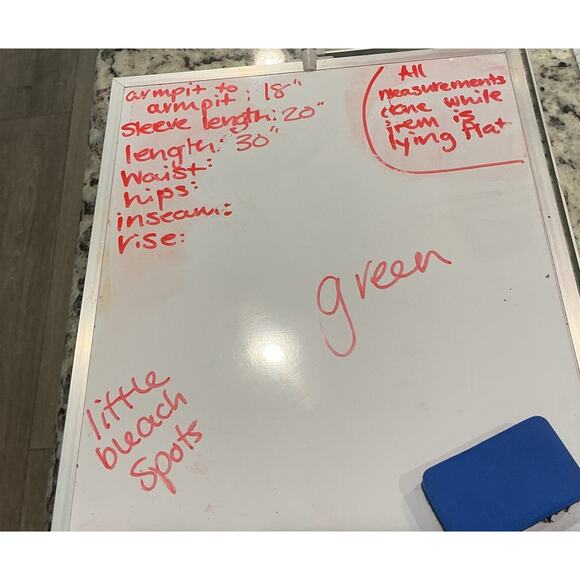 armpit to
armpit: 18"
sleeve length: 20"
length: 30"
waist:
hips:
inseam:
rise:
All
measurements
done while
item is
lying flat
green
little
bleach
spots